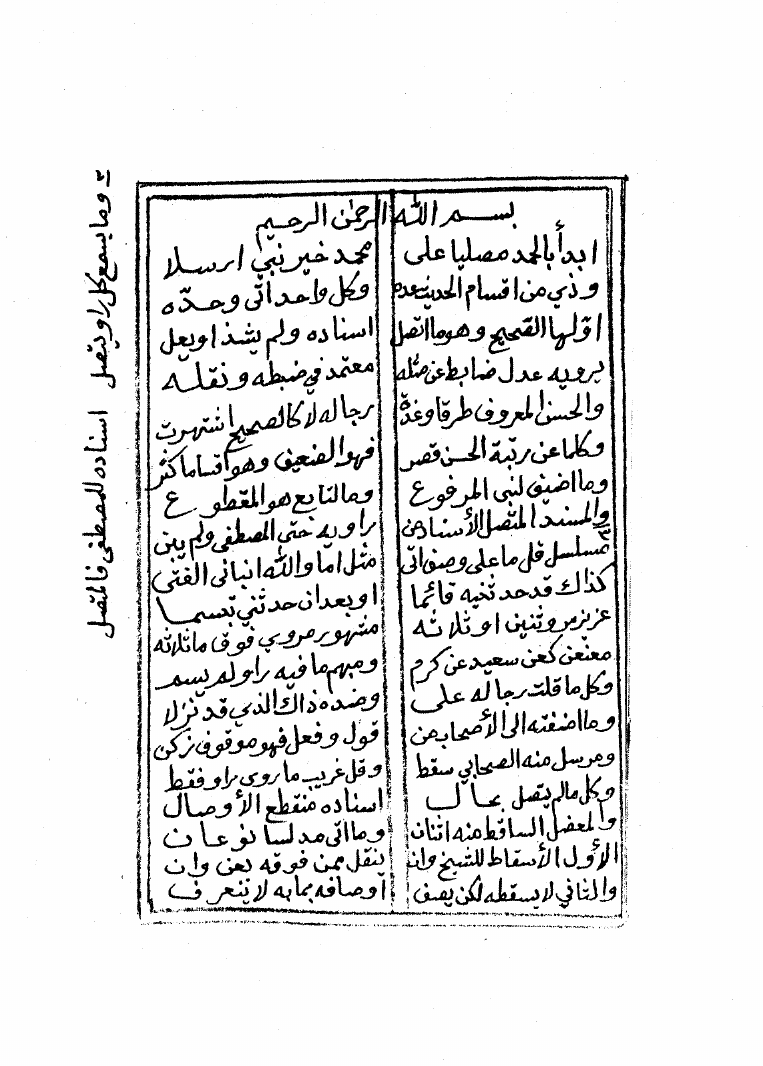 بسم الله الرحمن الرحيم
ابدأ بالحمد مصليا على محمد خير نبي ارسلا
وذي من اقسام الحديث عده وكل واحد اتى وحده
اولها الصحيح وهو ما اتصل اسناده ولم يشذ او يعل
يرويه عدل ضابط عن مثله معتمد في ضبطه ونقله
والحسن المعروف طرقا وغدة رجاله لا كالصحيح اشتهرت
وكلما عن رتبة الحسن قصر فهو الضعيف وهو اقساما كثر
وما اضيف لنبي المرفوع وما لتابع هو المقطوع
والمسند المتصل الأسناد من راويه حتى المصطفى ولم يبن
مسلسل قل ما على وصف اتى مثل اما والله انباني الفتى
كذاك قد حدثنيه قائما او بعد ان حدثني تبسما
عزيز مروثنين او ثلاثه مشهور مروي فوق ما ثلاثه
معنعن كعن سعيد عن كرم ومبهم ما فيه راو لم يسم
وكل ما قلت رجاله على وضده ذاك الذي قد نزلا
وما اضفته الى الأصحاب من قول وفعل فهو موقوف زكن
ومرسل منه الصحابي سقط وقل غريب ما روى راو فقط
وكل ما لم يتصل بحال اسناده منقطع الأوصال
والمعضل الساقط منه اثنان وما اتى مدلسا نوعان
الأول الأسقاط للشيخ وان ينقل ممن فوقه بعن وان
والثاني لا يسقطه لكن يصف أوصافه بما به لا ينعرف
٣ وما بسمع كل راو يتصل اسناده للمصطفى فالمتصل